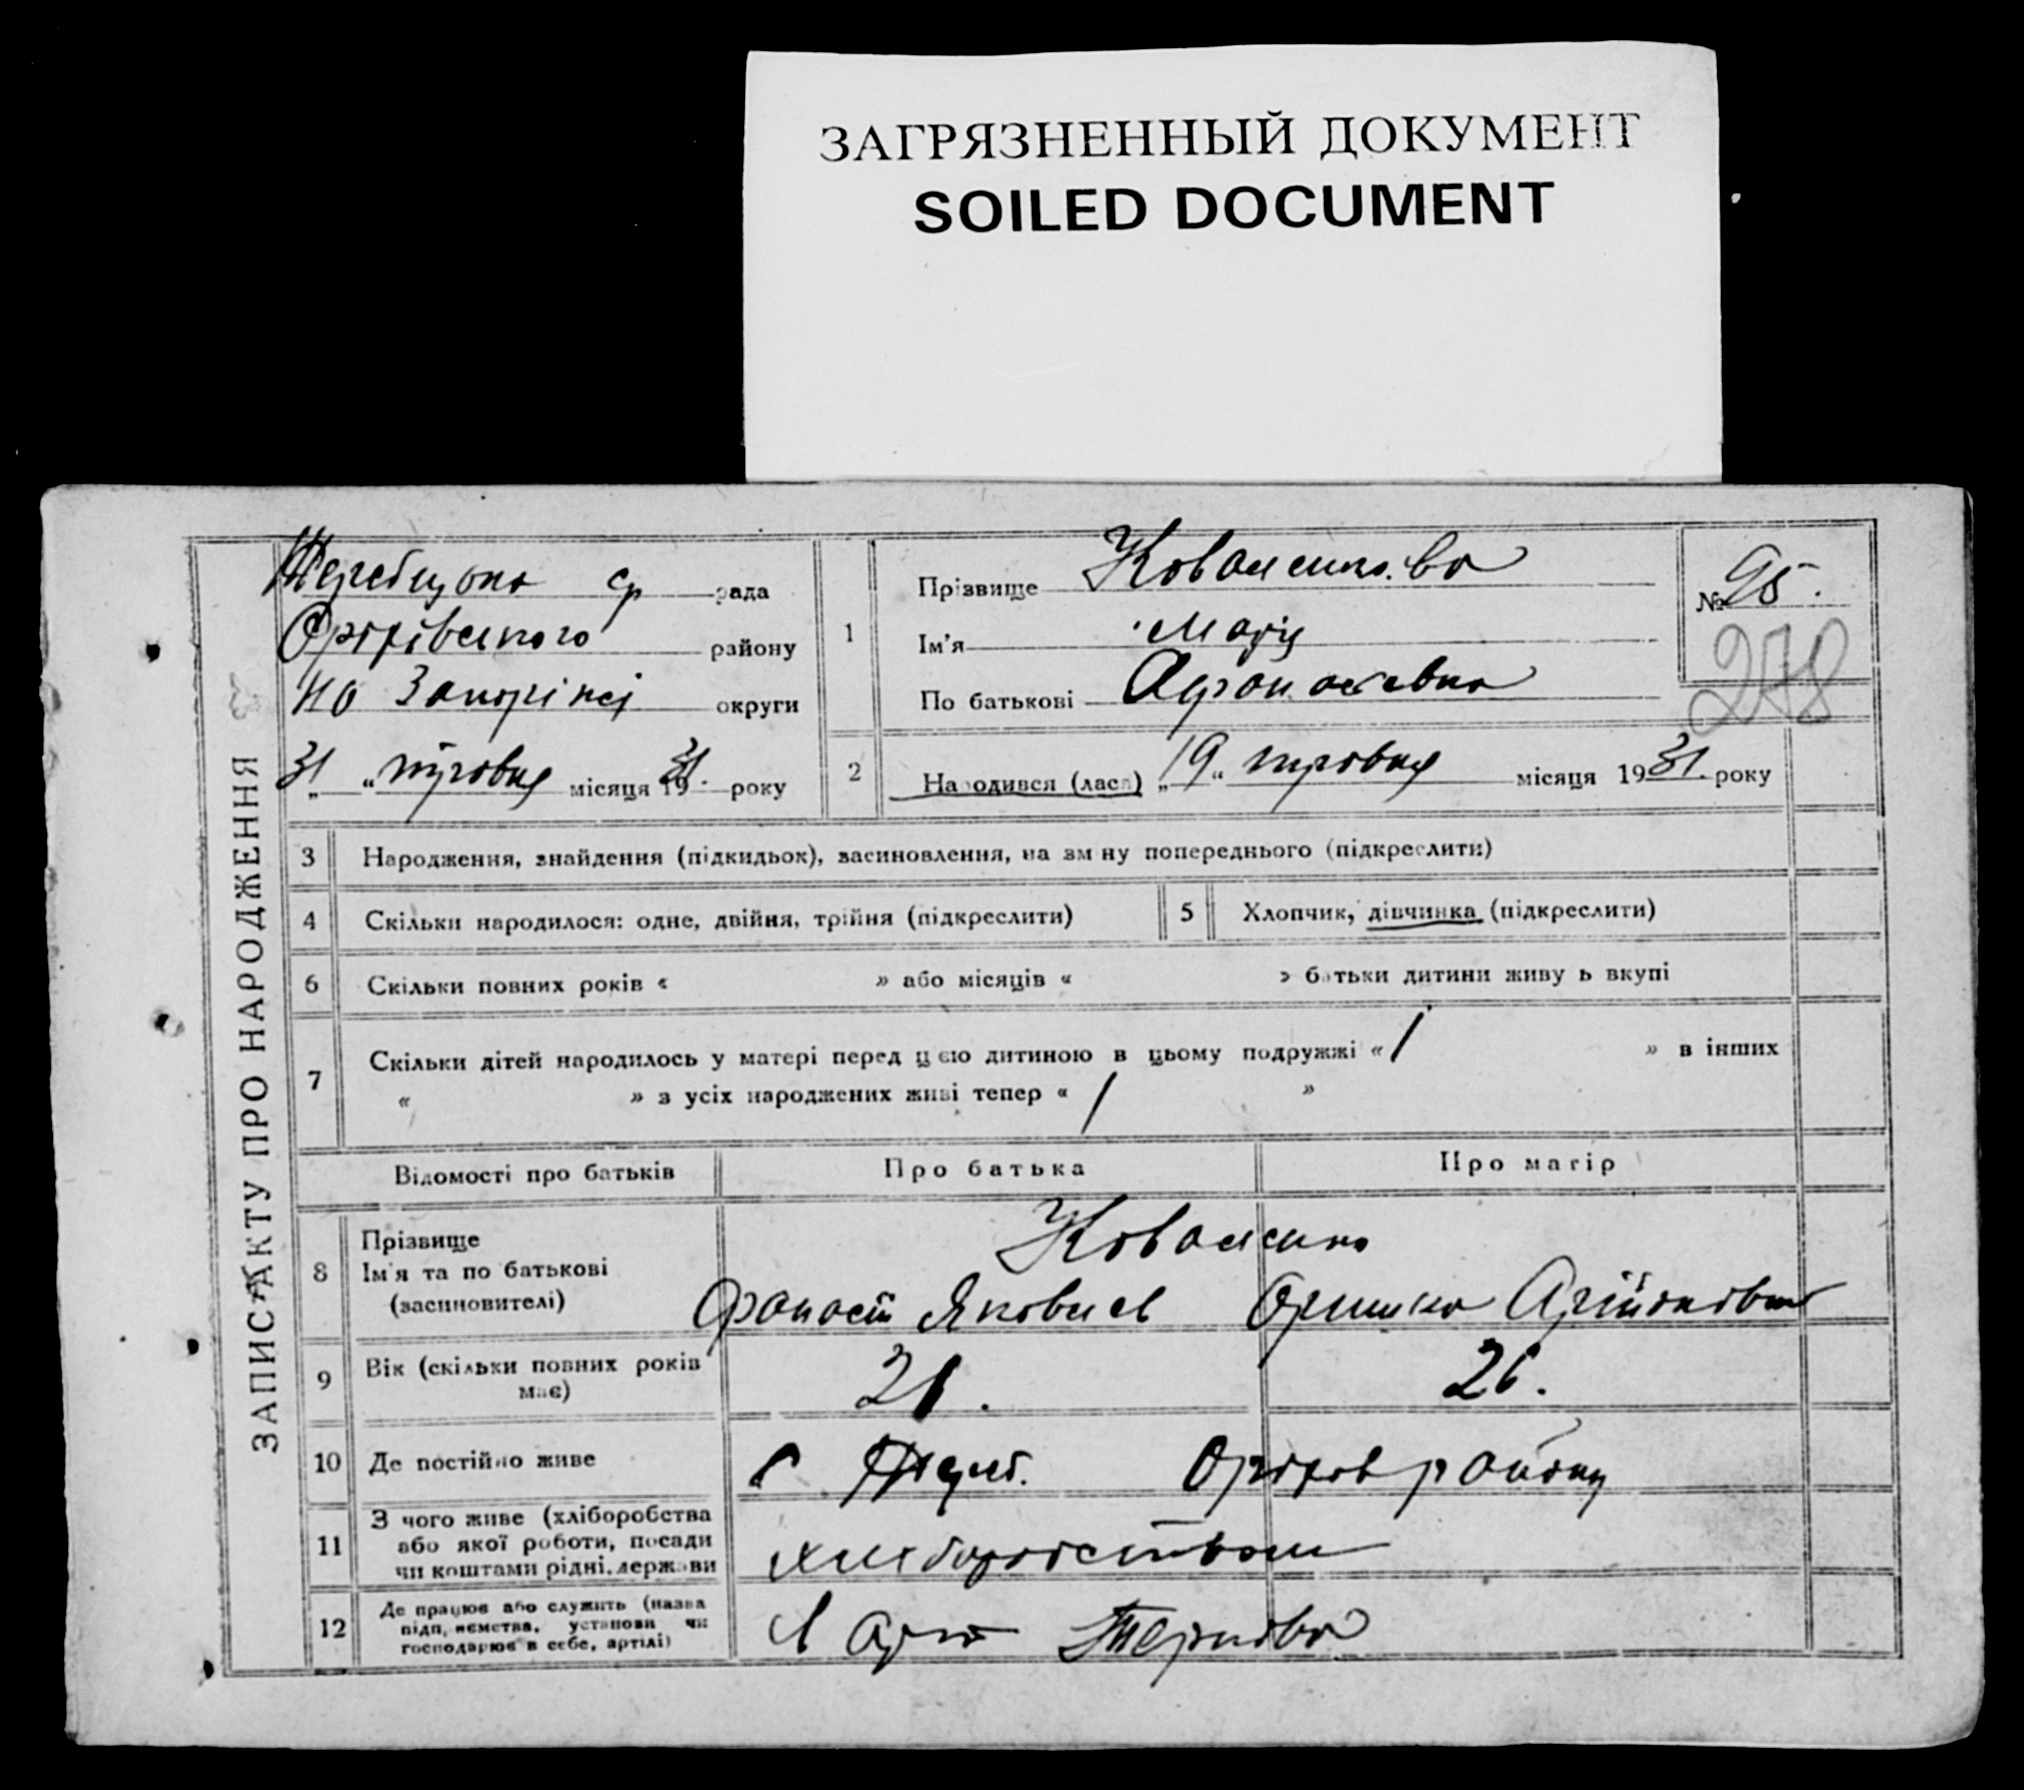 ЗАГРЯЗНЕННЫЙ ДОКУМЕНТ
SOILED DOCUMENT
ЗАПИС АКТУ ПРО НАРОДЖЕННЯ
рада
Оріхівського району
на округи
31 „ “ травня місяця 1931. року
1
Прізвище
Ім'я Марія
По батькові
№ 95.
278
2
Народився (лась) „19“ травня місяця 1931. року
3 Народження, знайдення (підкидьок), засиновлення, на зміну попереднього (підкреслити)
4 Скільки народилося: одне, двійня, трійня (підкреслити)
5 Хлопчик, дівчинка (підкреслити)
6 Скільки повних років « » або місяців « » батьки дитини живуть вкупі
7 Скільки дітей народилось у матері перед цією дитиною в цьому подружжі « 1 » в інших
« » з усіх народжених живі тепер « 1 »
Відомості про батьків Про батька Про матір
8 Прізвище
Ім'я та по батькові
(засиновителі)
Коваленко
Яковлев
9 Вік (скільки повних років
має)
26.
10 Де постійно живе
с Жереб. Оріхов району
11 З чого живе (хліборобства
або якої роботи, посади
чи коштами рідні, держави
хліборобством
12 Де працює або служить (назва
підприємства, установи чи
господарює в себе, артілі)